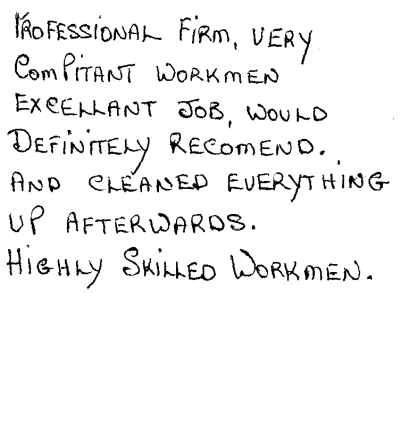 PROFESSIONAL FIRM, VERY
COMPITANT WORKMEN
EXCELLANT JOB, WOULD
DEFINITELY RECOMEND.
AND CLEANED EVERYTHING
UP AFTERWARDS.
HIGHLY SKILLED WORKMEN.